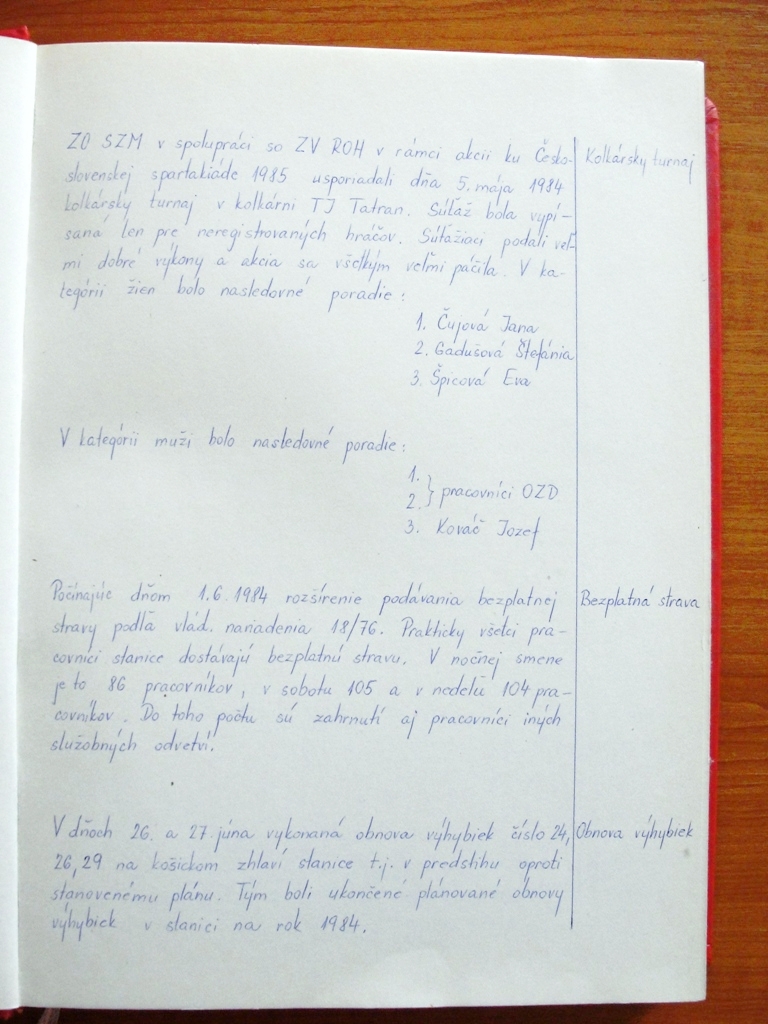 ZO SZM v spolupráci so ZV ROH v rámci akcii ku Česko-
slovenskej spartakiáde 1985 usporiadali dňa 5. mája 1984
kolkársky turnaj v kolkárni TJ Tatran. Súťaž bola vypí-
saná len pre neregistrovaných hráčov. Súťažiaci podali veľ-
mi dobré výkony a akcia sa všetkým veľmi páčila. V ka-
tegórii žien bolo nasledovné poradie:
Kolkársky turnaj
1. Čujová Jana
2. Gadušová Štefánia
3. Špicová Eva
V kategórii muži bolo nasledovné poradie:
1.
2. } pracovníci OZD
3. Kováč Jozef
Počínajúc dňom 1.6.1984 rozšírenie podávania bezplatnej
stravy podľa vlád. nariadenia 18/76. Prakticky všetci pra-
covníci stanice dostávajú bezplatnú stravu. V nočnej smene
je to 86 pracovníkov, v sobotu 105 a v nedeľu 104 pra-
covníkov. Do toho počtu sú zahrnutí aj pracovníci iných
služobných odvetví.
Bezplatná strava
V dňoch 26. a 27. júna vykonaná obnova výhybiek číslo 24,
26, 29 na košickom zhlaví stanice t.j. v predstihu oproti
stanovenému plánu. Tým boli ukončené plánované obnovy
výhybiek v stanici na rok 1984.
Obnova výhybiek